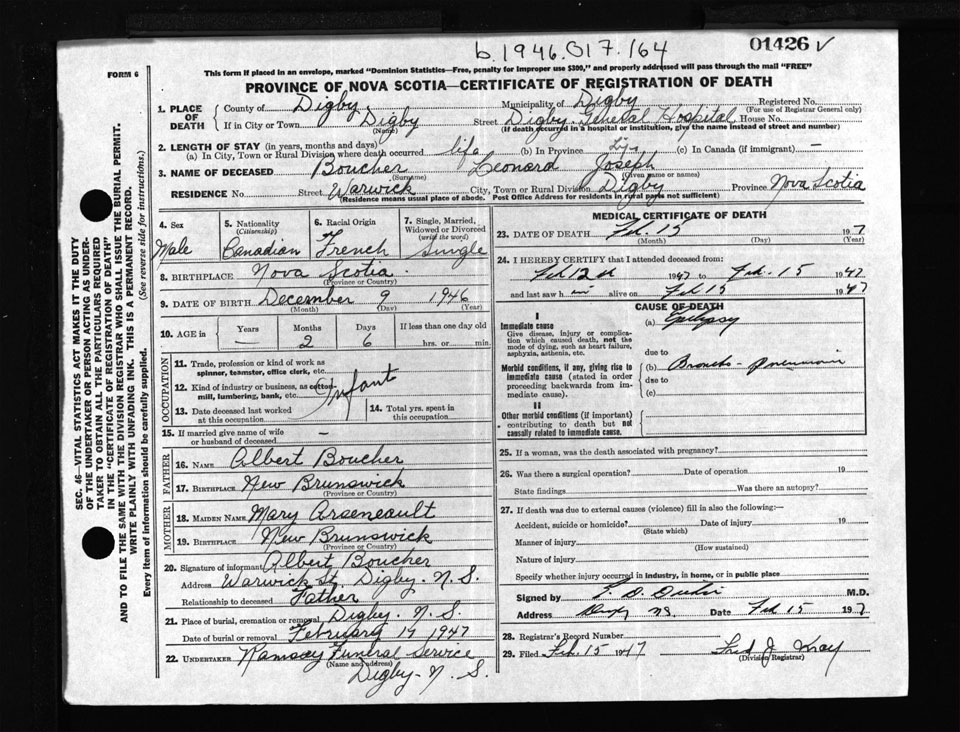 b. 1946. 017. 164
01426 ✓
FORM 6
This form if placed in an envelope, marked "Dominion Statistics—Free, penalty for improper use $300," and properly addressed will pass through the mail "FREE"
PROVINCE OF NOVA SCOTIA—CERTIFICATE OF REGISTRATION OF DEATH
1. PLACE OF DEATH County of Digby Municipality of Digby Registered No.
(For use of Registrar General only)
If in City or Town Digby Street Digby General Hospital House No.
(Name) (If death occurred in a hospital or institution, give the name instead of street and number)
2. LENGTH OF STAY (in years, months and days)
(a) In City, Town or Rural Division where death occurred life (b) In Province (c) In Canada (if immigrant) —
3. NAME OF DECEASED Boucher Leonard Joseph
(Surname) (Given name or names)
RESIDENCE No. Street Warwick City, Town or Rural Division Digby Province Nova Scotia
(Residence means usual place of abode. Post Office Address for residents in rural parts not sufficient)
4. Sex 5. Nationality (Citizenship) 6. Racial Origin 7. Single, Married, Widowed or Divorced (write the word)
Male Canadian French Single
8. BIRTHPLACE Nova Scotia
(Province or Country)
9. DATE OF BIRTH December 9 1946
(Month) (Day) (Year)
10. AGE in Years Months Days If less than one day old
— 2 6 hrs. or min.
OCCUPATION
11. Trade, profession or kind of work as spinner, teamster, office clerk, etc.
12. Kind of industry or business, as cotton mill, lumbering, bank, etc. Infant
13. Date deceased last worked at this occupation
14. Total yrs. spent in this occupation
15. If married give name of wife or husband of deceased —
FATHER
16. NAME Albert Boucher
17. BIRTHPLACE New Brunswick
(Province or Country)
MOTHER
18. MAIDEN NAME Mary Arseneault
19. BIRTHPLACE New Brunswick
(Province or Country)
20. Signature of informant Albert Boucher
Address Warwick St. Digby. N.S.
Relationship to deceased Father
21. Place of burial, cremation or removal Digby. N.S.
Date of burial or removal February 17 1947
22. UNDERTAKER Ramsay Funeral Service
(Name and address)
Digby- N.S.
MEDICAL CERTIFICATE OF DEATH
23. DATE OF DEATH Feb. 15 1947
(Month) (Day) (Year)
24. I HEREBY CERTIFY that I attended deceased from:
Feb 12th 1947 to Feb. 15 1947
and last saw h im alive on Feb 15 1947
CAUSE OF DEATH
I
Immediate cause
Give disease, injury or complication which caused death, not the mode of dying, such as heart failure, asphyxia, asthenia, etc.
(a) Epilepsy
due to
Morbid conditions, if any, giving rise to immediate cause (stated in order proceeding backwards from immediate cause).
(b) Broncho-pneumonia
due to
(c)
II
Other morbid conditions (if important) contributing to death but not causally related to immediate cause.
25. If a woman, was the death associated with pregnancy?
26. Was there a surgical operation? Date of operation 19
State findings Was there an autopsy?
27. If death was due to external causes (violence) fill in also the following:—
Accident, suicide or homicide? Date of injury 19
(State which)
Manner of injury
(How sustained)
Nature of injury
Specify whether injury occurred in industry, in home, or in public place
Signed by M.D.
Address Digby NS. Date Feb 15 1947
28. Registrar's Record Number
29. Filed Feb. 15 1947 Fred J.
(Division Registrar)
SEC. 46—VITAL STATISTICS ACT MAKES IT THE DUTY
OF THE UNDERTAKER OR PERSON ACTING AS UNDER-
TAKER TO OBTAIN ALL THE PARTICULARS REQUIRED
IN THE "CERTIFICATE OF REGISTRATION OF DEATH"
AND TO FILE THE SAME WITH THE DIVISION REGISTRAR WHO SHALL ISSUE THE BURIAL PERMIT.
WRITE PLAINLY WITH UNFADING INK. THIS IS A PERMANENT RECORD.
Every item of information should be carefully supplied. (See reverse side for instructions.)